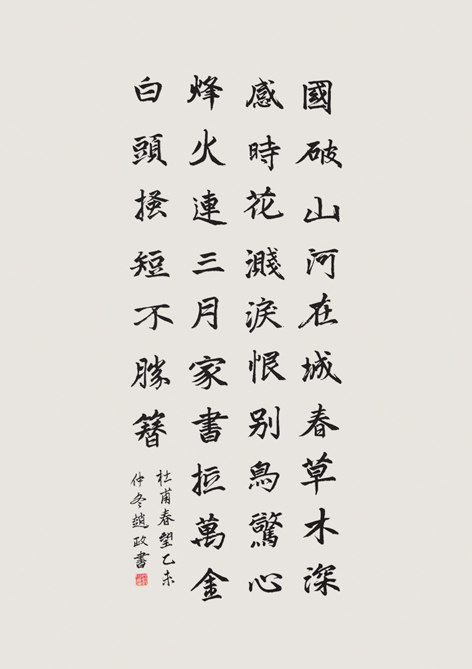 國破山河在城春草木深
感時花濺淚恨别鳥驚心
烽火連三月家書抵萬金
白頭搔短不勝簪
杜甫春望乙未
仲冬趙政書